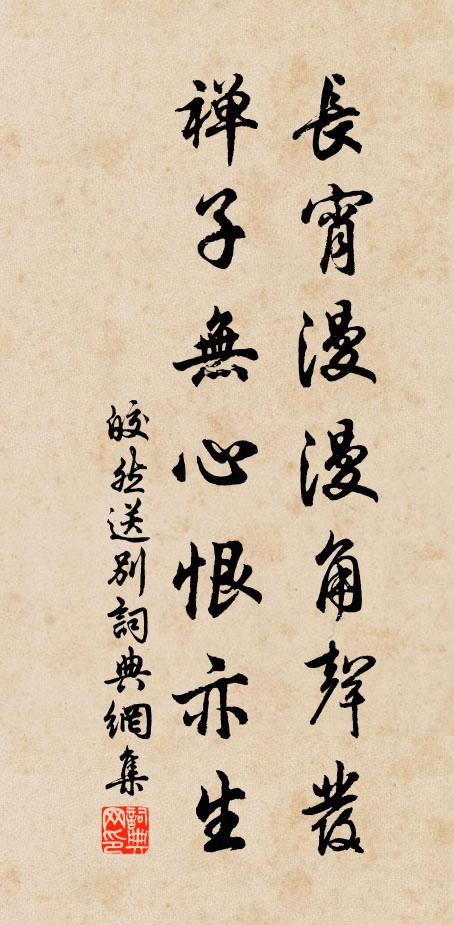 長宵漫漫角聲發
禅子無心恨亦生
皎然送別詞典網集
詞典網印